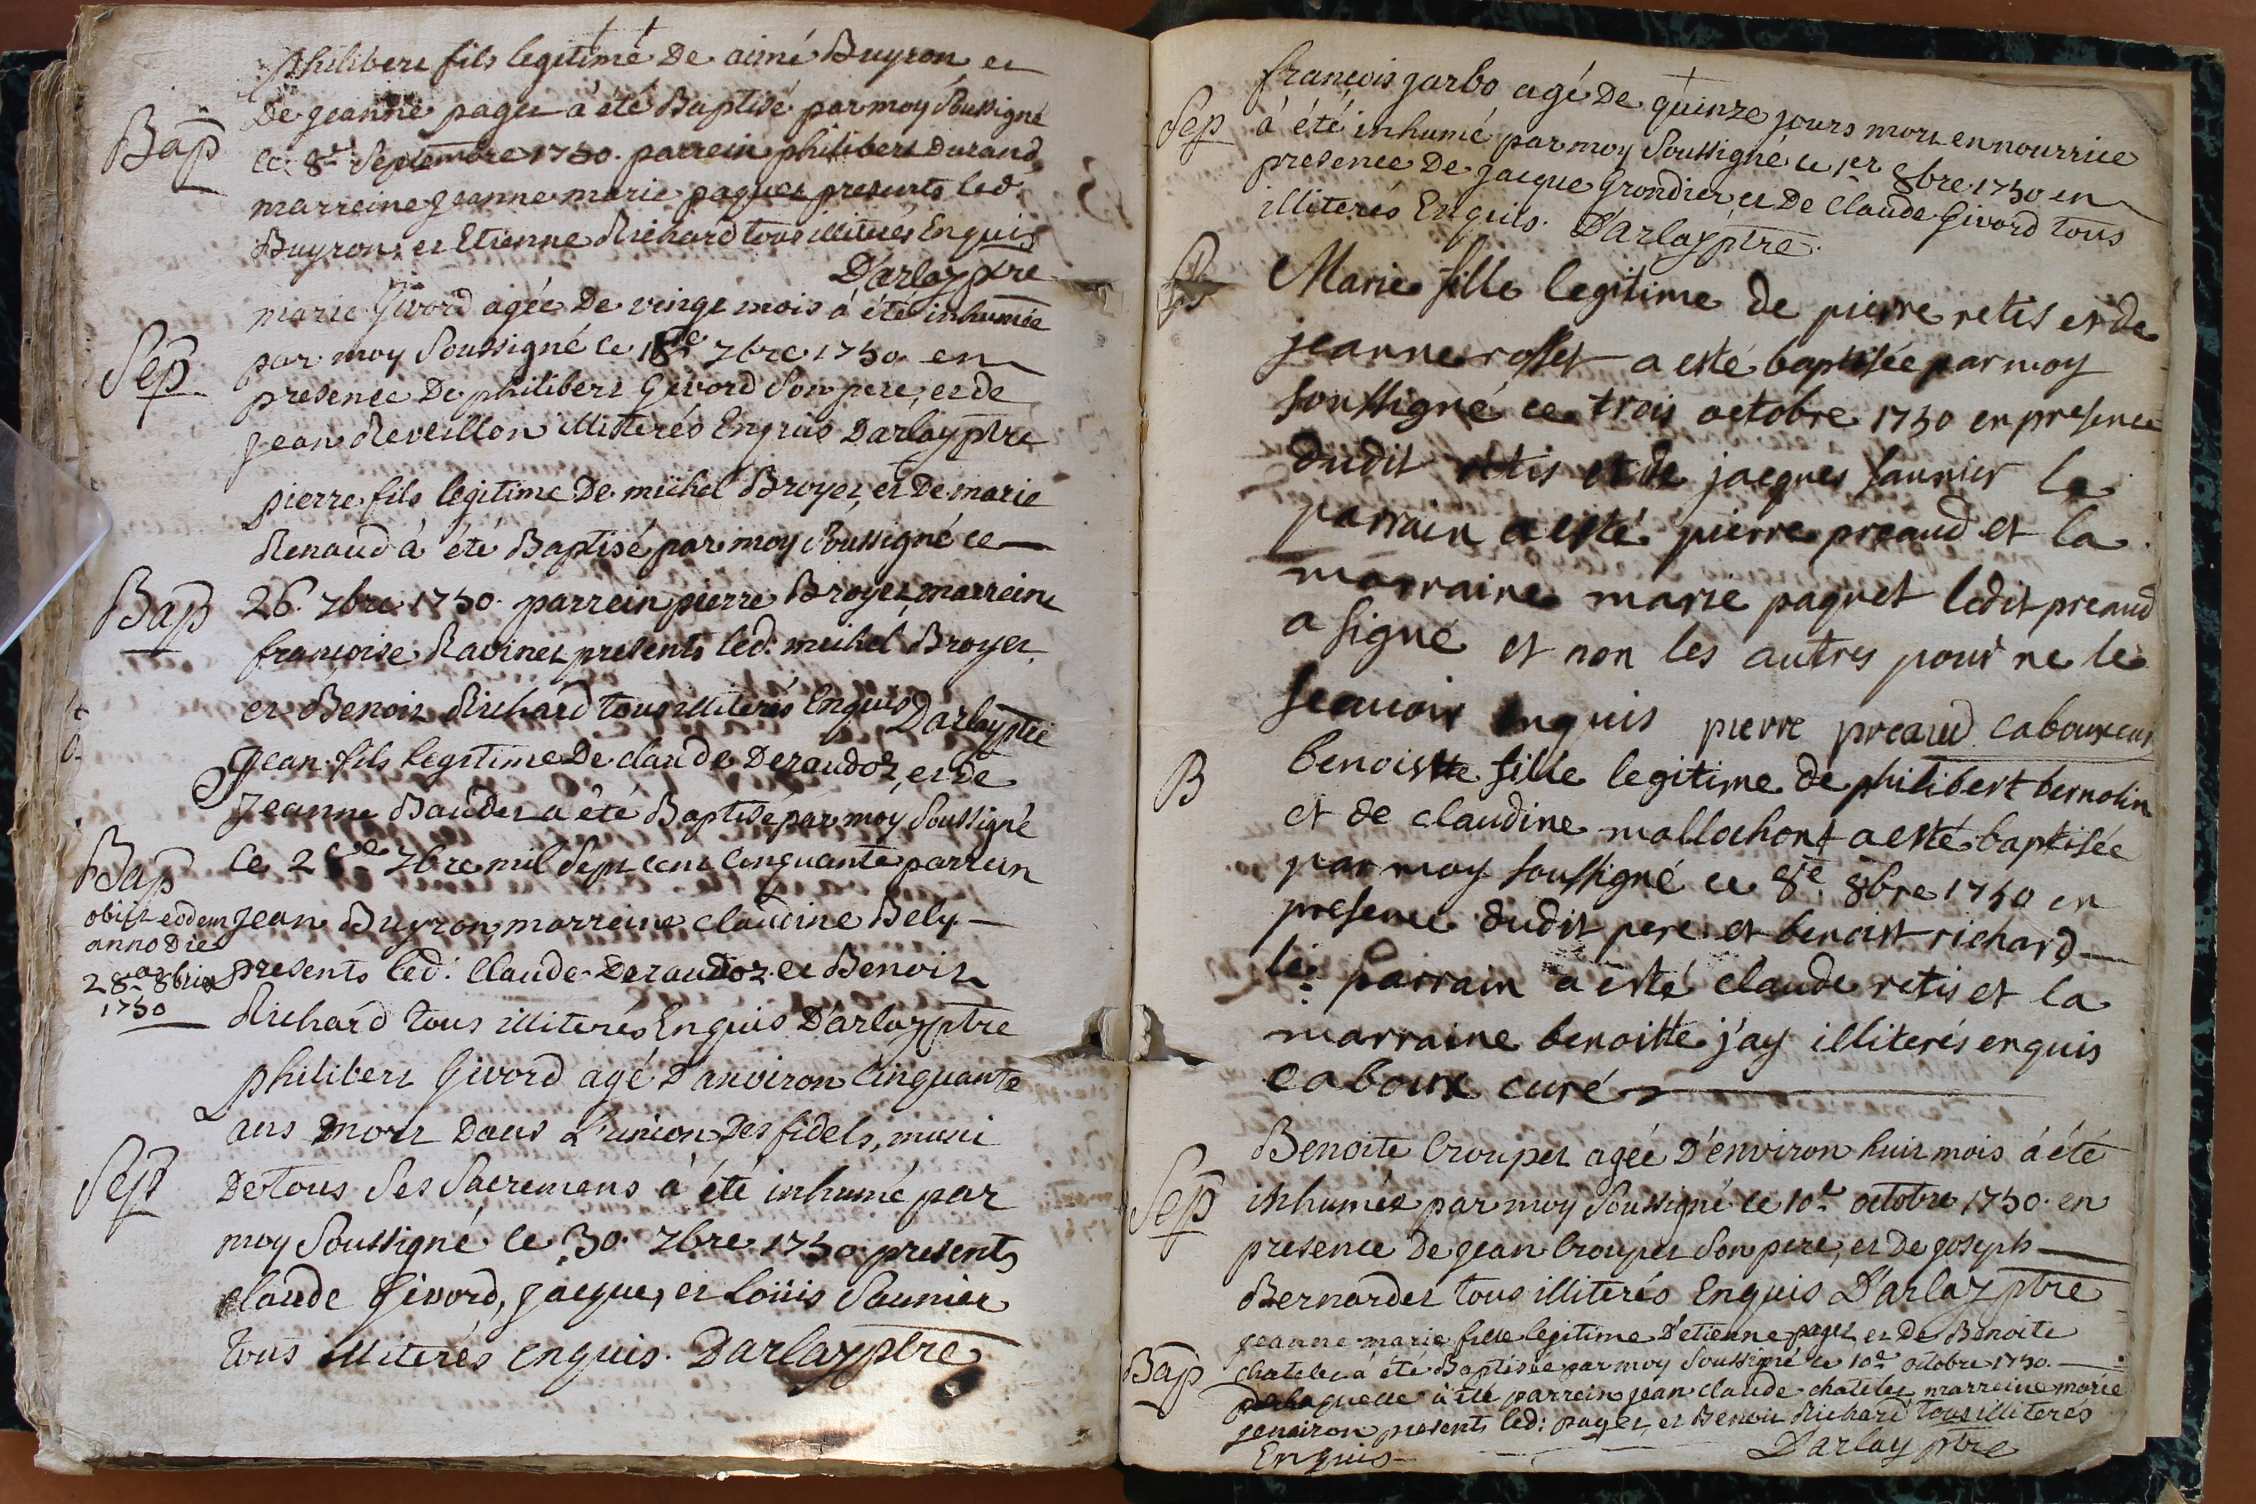 philibert fils legitime De aimé Buyron et
De jeanne paget à été Baptisé par moy Soussigné
Bap
ce 8e Septembre 1750. parrein philibert Durand
marreine jeanne marie paquet presents led.
Buyron, et Etienne Richard tous illiterés Enquis
D'arlay ptre
marie Givord agée De vingt mois à été inhumée
Sep
par moy Soussigné ce 18e 7bre 1750 en
presence De philibert Givord Son pere, et de
jean Reveillon illiterés Enquis Darlay ptre
pierre fils legitime De michel Broyer, et De marie
Renaud à été Baptisé par moy Soussigné ce
Bap
26. 7bre 1750. parrein pierre Broyer, marreine
françoise Ravinet presents led. michel Broyer
et Benoit Richard tous illiterés Enquis Darlay ptre
Jean fils legitime De claude Deraudoz, et De
Jeanne Baudet a été Baptisé par moy Soussigné
Bap
ce 2 7bre mil Sept cent cinquante parrein
obiit eodem
anno Die
28a 8bris
1750
jean Buyron, marreine claudine Bely
presents led. Claude Deraudoz et Benoit
Richard tous illiterés Enquis D'arlay ptre
philibert Givord agé D'anviron Cinquante
ans mort Dans L'union Des fidels, muni
Sep
De tous Ses Sacremens à été inhumé par
moy Soussigné le 30. 7bre 1750 presents
claude Givord, jacque, et Loüis Saunier
tous illiterés enquis. Darlay ptre
françois jarbo agé De quinze jours mort en nourrice
Sep
à été inhumé par moy Soussigné ce 1er 8bre 1750 en
presence De jacque Grondier et De Claude Givord tous
illiterés Enquis. D'Arlay ptre.
Marie fille legitime de pierre retis et de
jeanne rosset a esté baptisée par moy
soussigné ce trois octobre 1750 en presence
dudit retis et de jacques saunier le
parrain a esté pierre preaud et la
marraine marie paquet ledit preaud
a signé et non les autres pour ne le
scauoir enquis pierre preaud caboux curé
B
benoistte fille legitime de philibert bernolin
et de claudine mallochont a esté baptisée
par moy soussigné ce 8e 8bre 1750 en
presence dudit pere et benoist richard
le parrain a esté claude retis et la
marraine benoitte j'ay illiterés enquis
caboux curé
Benoite Croupet agée D'environ huit mois à été
Sep
inhumée par moy Soussigné ce 10e octobre 1750. en
presence De jean Croupet Son pere, et De joseph
Bernardet tous illiterés Enquis D'arlay ptre
jeanne marie fille legitime D'etienne paget et De Benoite
Bap
chatelet à été Baptisée par moy Soussigné ce 10e octobre 1750.
De laquelle à été parrein jean claude chatelet marreine marie
jeanviron presents led: paget, et Benoit Richard tous illiterés
Enquis
D'arlay ptre